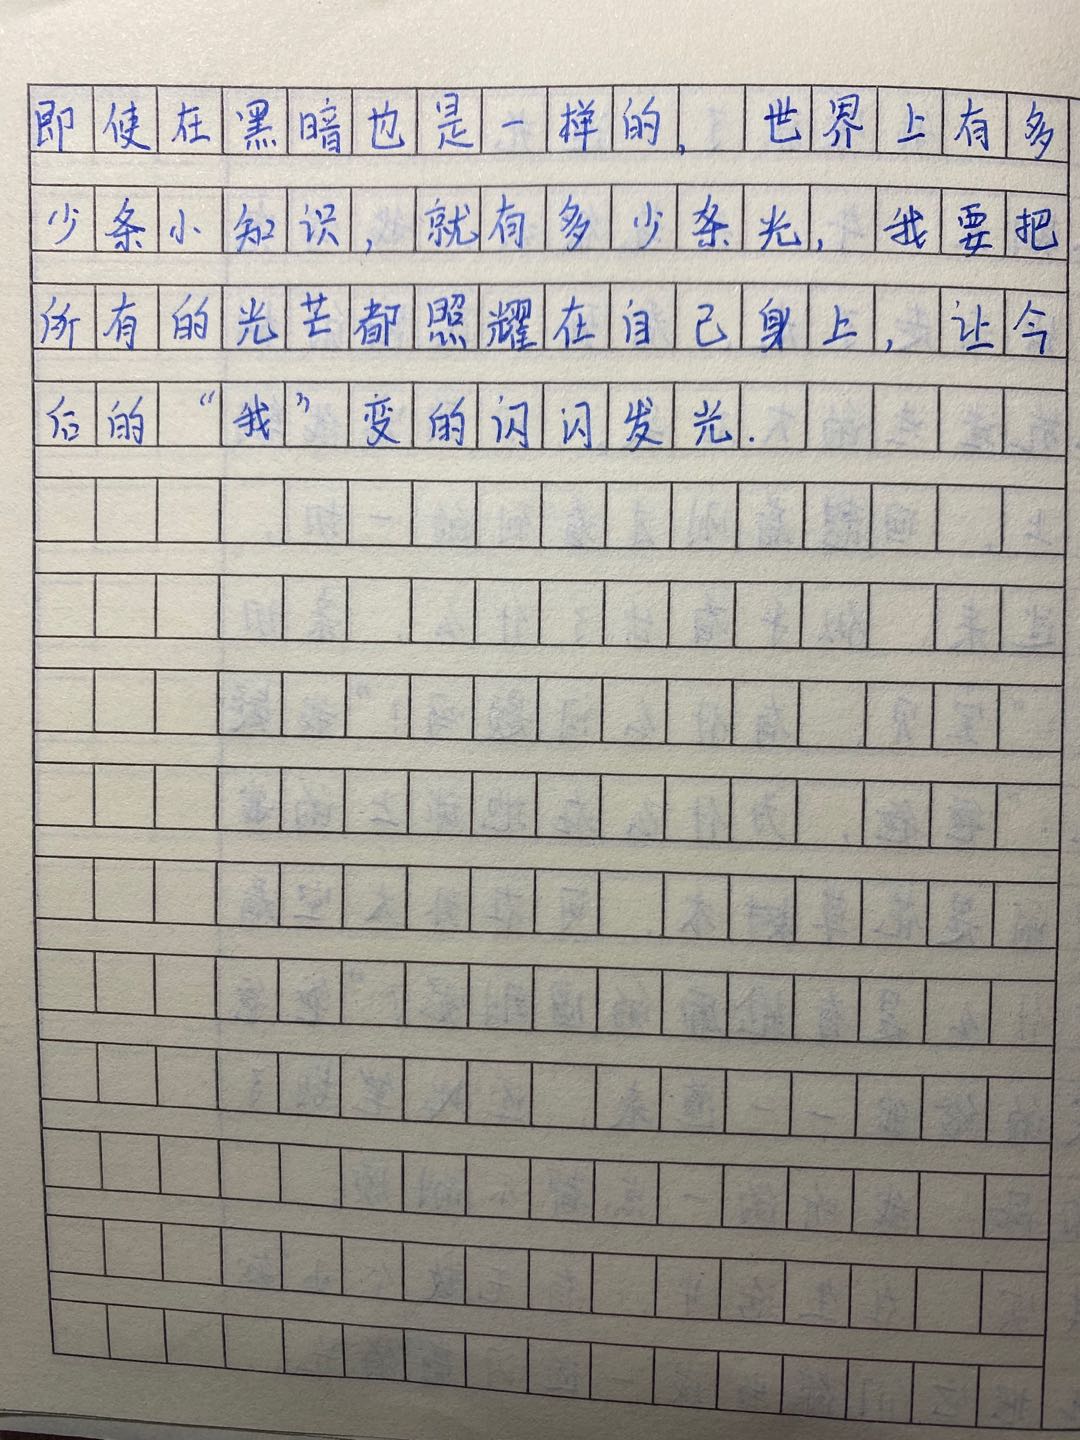 即使在黑暗也是一样的，世界上有多
少条小知识，就有多少条光，我要把
所有的光芒都照耀在自己身上，让今
后的“我”变的闪闪发光.